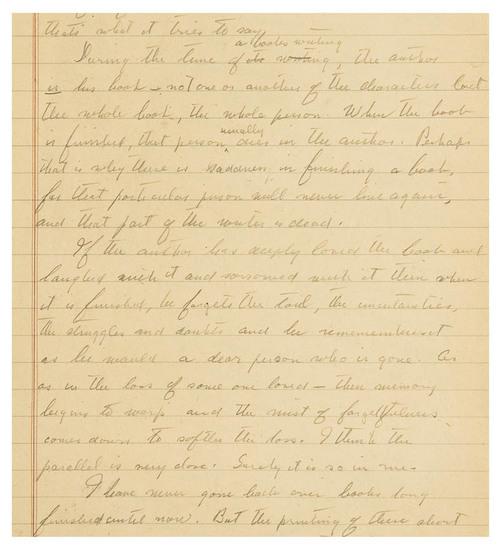 that's what it tries to say.
a books writing
During the time of its writing, the author
is his book - not one or another of the characters but
the whole book, the whole person. When the book
usually
is finished, that person dies in the author. Perhaps
that is why there is sadness in finishing a book,
for that particular person will never live again,
and that part of the writer is dead.
If the author has deeply loved the book and
laughed with it and sorrowed with it then when
it is finished, he forgets the toil, the uncertainties,
the struggles and doubts and he remembers it
as he would a dear person who is gone. As
as in the loss of some one loved - then memory
begins to warp and the mist of forgetfulness
comes down to soften the loss. I think the
parallel is very close. Surely it is so in me.
I have never gone back over books long
finished until now. But the printing of these short